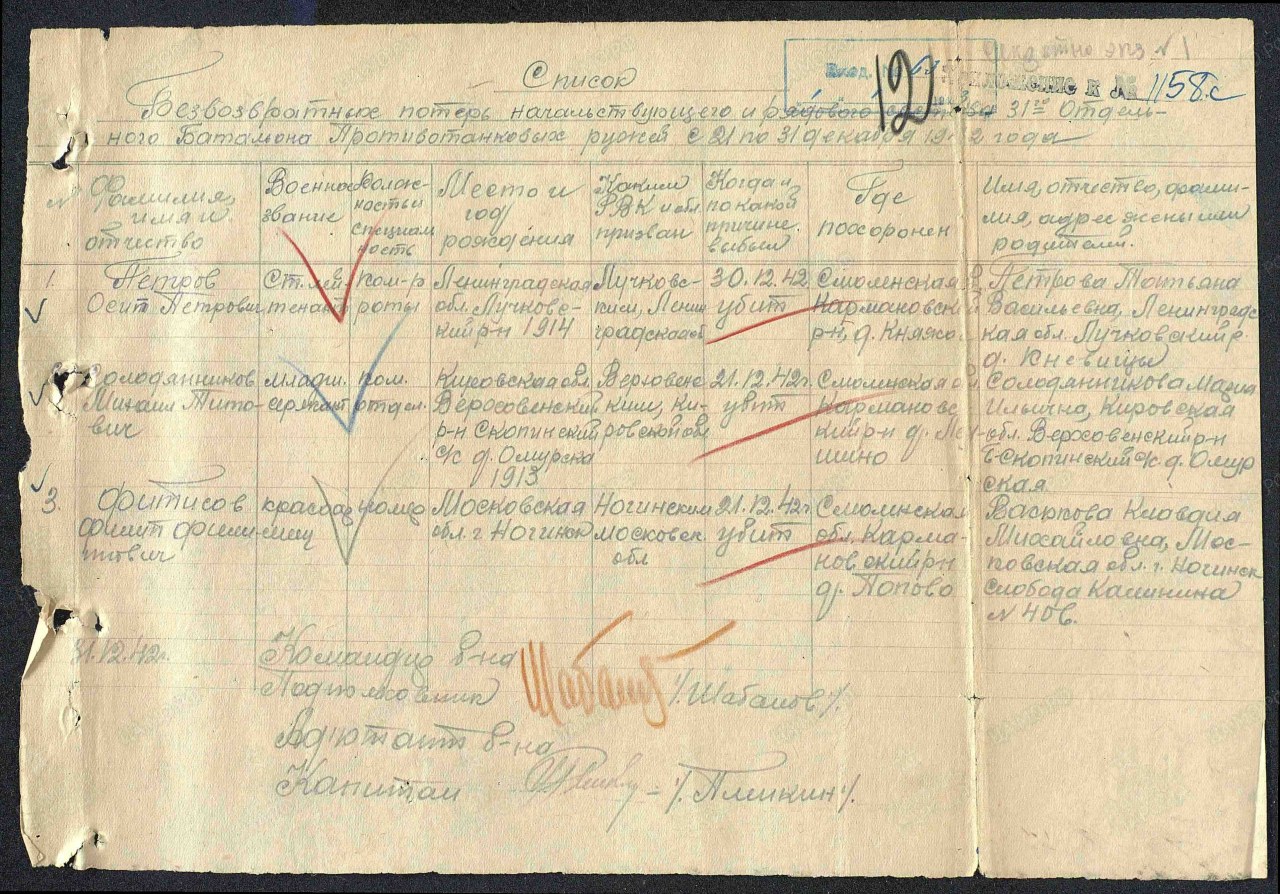 Секретно экз №1
Вход.
12
Приложение к № 1158с
Список
Безвозвратных потерь начальствующего и рядового состава 31го Отдель-
ного Батальона Противотанковых ружей с 21 по 31 декабря 1942 года
№
Фамилия, имя и отчество
Военное звание
Должность и специальность
Место и год рождения
Каким РВК и обл. призван
Когда и по какой причине выбыл
Где похоронен
Имя, отчество, фамилия, адрес жены или родителей.
1.
Петров
Осип Петрович
Ст. лейтенант
ком-р
роты
Ленинградская
обл. Лучковс-
кий р-н 1914
Лучковс-
ким, Ленин
градская об
30.12.42
убит
Смоленская о
Кармановский
р-н, д. Княжо
Петрова Татьяна
Васильевна, Ленинградс
кая обл. Лучковский р.
д. Кневицы
Солодянников
Михаил Тито-
вич
младш.
сержант
ком.
отдел.
Кировская обл.
Верховенский
р-н Скопинский
с/с д. Омурска
1913
Верховенс
ким, Ки-
ровской обл
21.12.42г.
убит
Смоленская о
Кармановс-
кий р-н д.
шино
Солодянникова Мария
Ильична, Кировская
обл. Верховенский р-н
Скопинский с/с д. Омур
ская
3.
Фитисов
Филип Филип-
пович
красноар
меец
номер
Московская
обл. г. Ногинск
Ногинским
Московск.
обл
21.12.42г.
убит
Смоленская
обл. Карма-
новский р-н
д. Попово
Васюкова Клавдия
Михайловна, Мос-
ковская обл. г. Ногинск
слобода Калинина
№ 40в.
31.12.42г.
Командир б-на
Подполковник
Шабанов
/Шабанов/.
Адютант б-на
Капитан
/Пликин/.